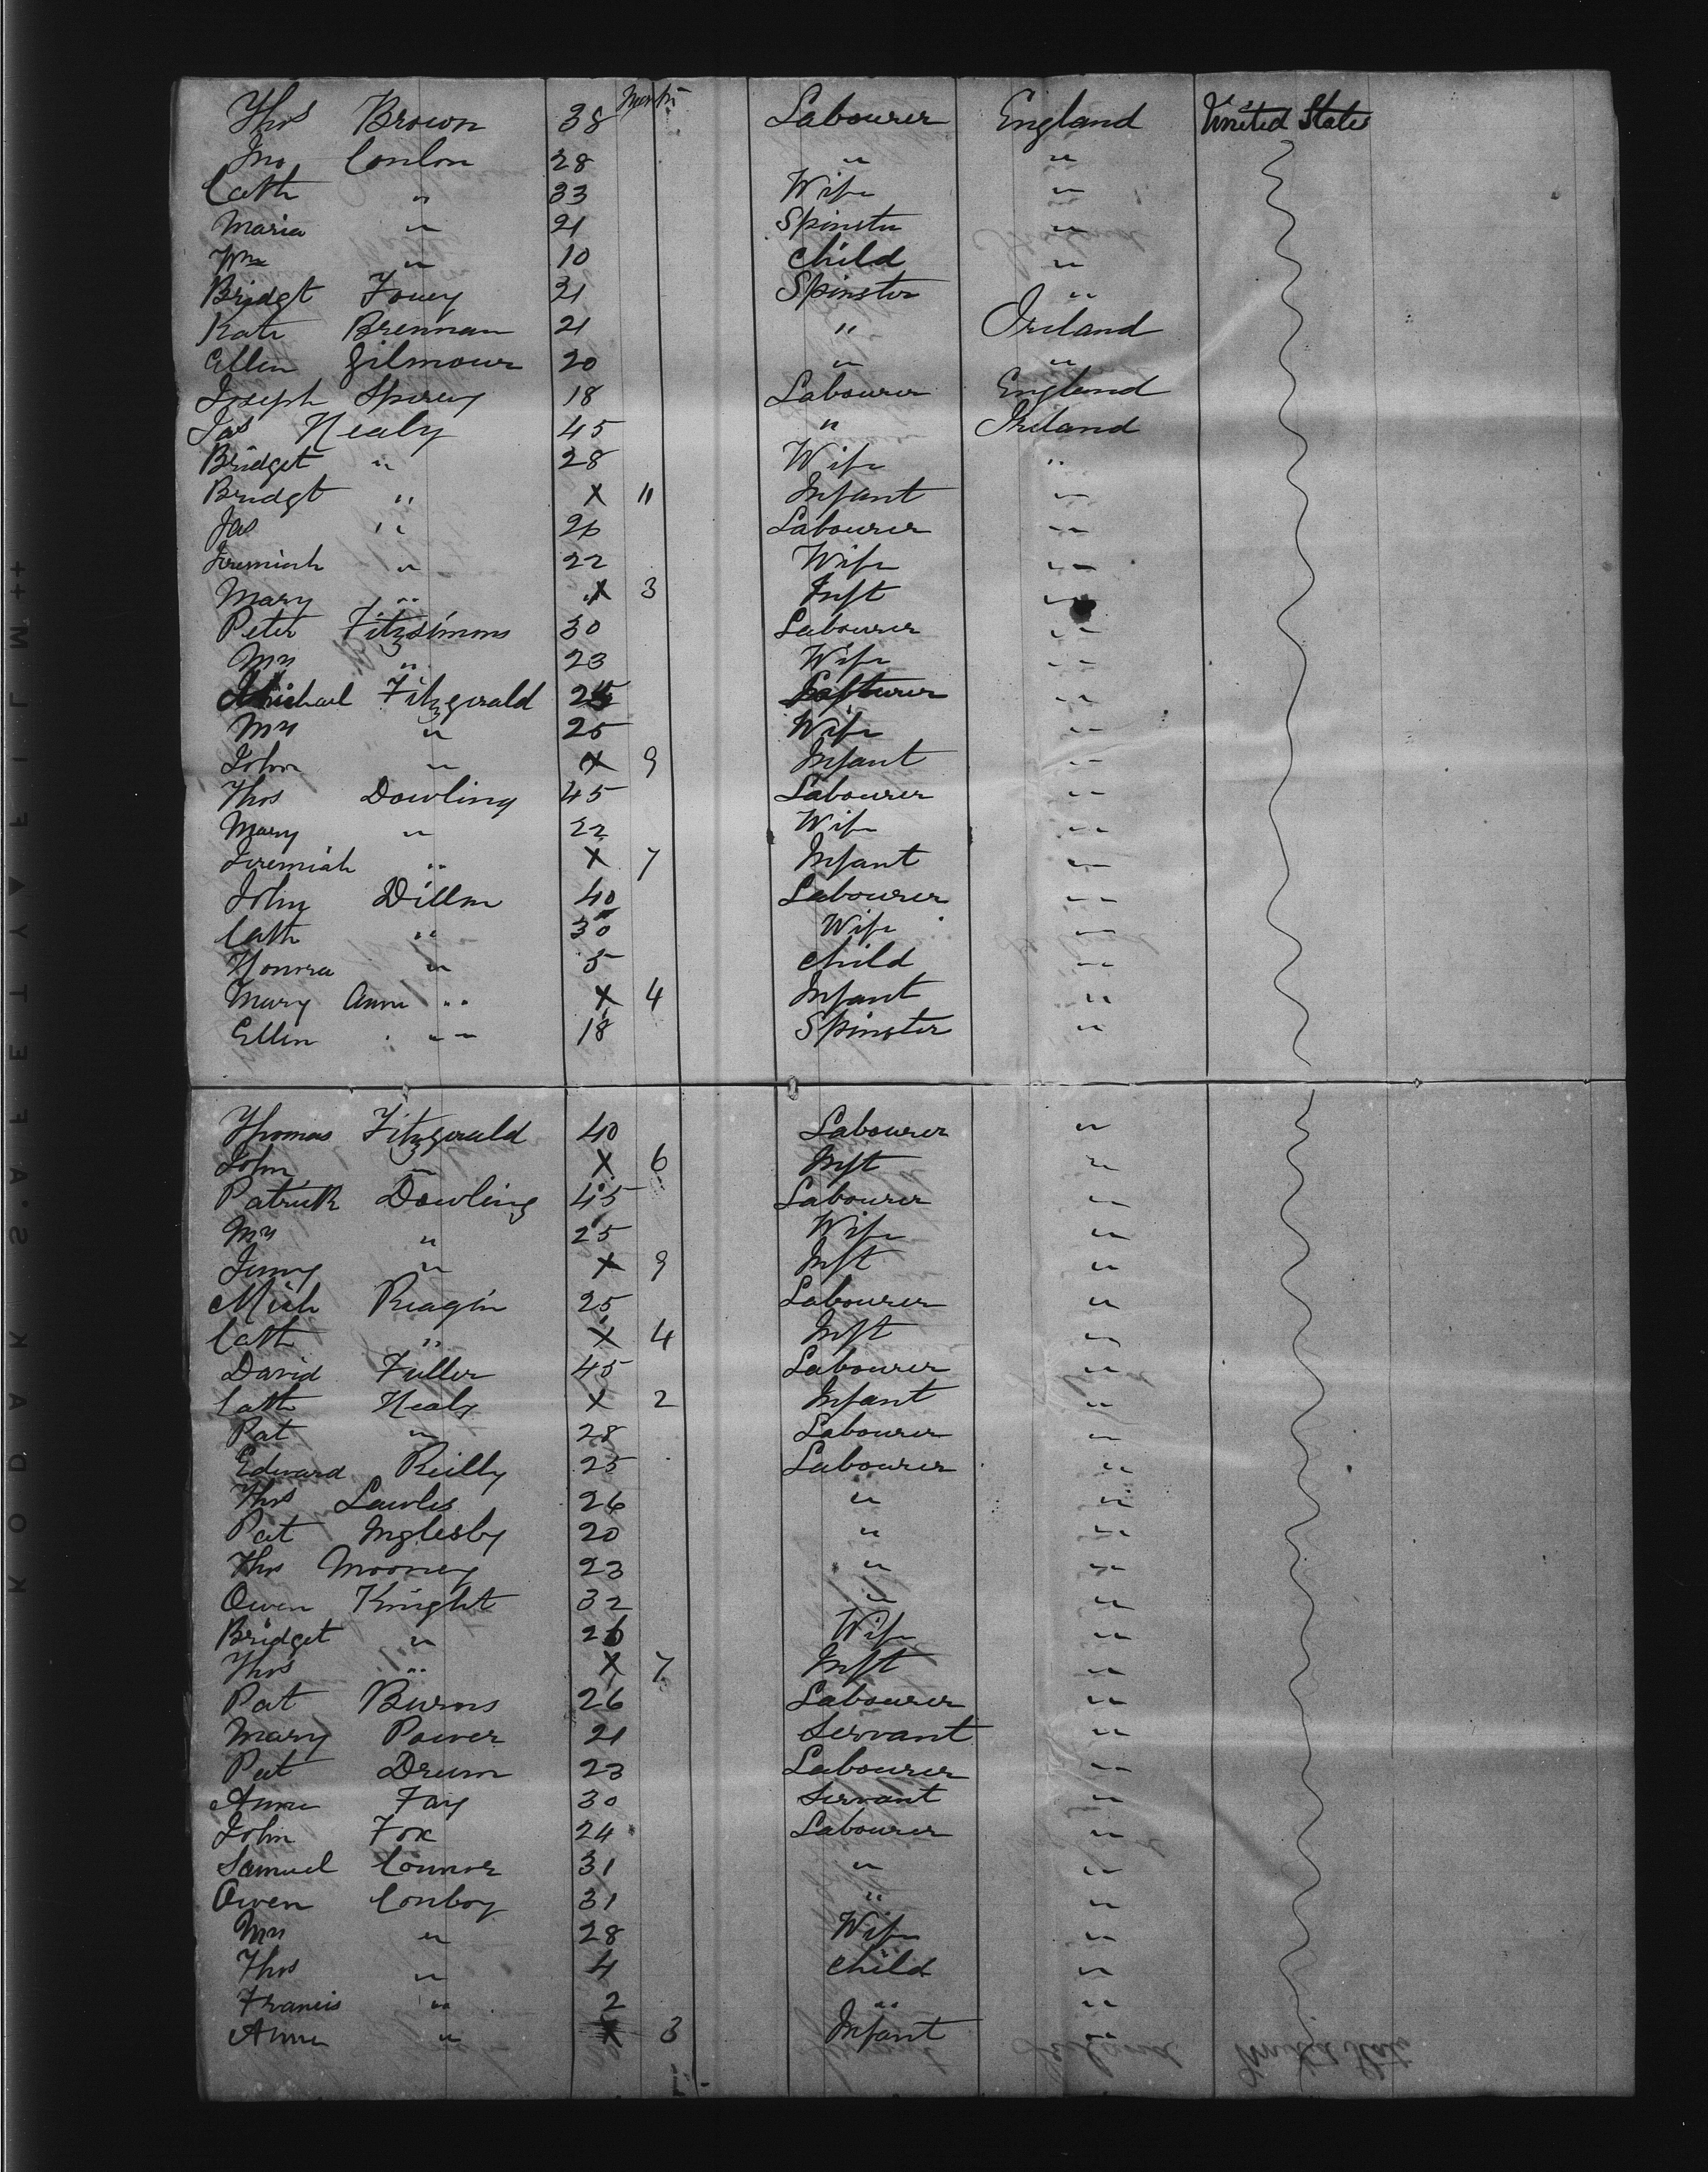 Months
Thos Brown 38 Labourer England United States
Jno Conlon 28 " "
Cath " 33 Wife "
Maria " 21 Spinster "
Wm " 10 Child "
Bridgt 21 Spinster "
Kate Brennan 21 " Ireland
Ellen Gilmour 20 " "
Joseph 18 Labourer England
Jas Nealy 45 " Ireland
Bridget " 28 Wife "
Bridgt " X 11 Infant "
Jas " 26 Labourer "
Jeremiah " 22 Wife "
Mary " X 3 Inft "
Peter Fitzsimons 30 Labourer "
Mrs " 23 Wife "
Michael Fitzgerald "
Mrs " 25 Wife "
John " X 9 Infant "
Thos Dowling 45 Labourer "
Mary " 22 Wife "
Jeremiah " X 7 Infant "
John Dillon 40 Labourer "
Cath " 30 Wife "
Honora " 5 Child "
Mary Ann " X 4 Infant "
Ellen " 18 Spinster "
Thomas Fitzgerald 40 Labourer "
John " X 6 Inft "
Patrick Dowling 45 Labourer "
Mrs " 25 Wife "
Jenny " X 9 Inft "
Mich Reagin 25 Labourer "
Cath " X 4 Inft "
David Fuller 45 Labourer "
Cath Nealy X 2 Infant "
Pat " 28 Labourer "
Edward Reilly 25 Labourer "
Thos Lawles 26 " "
Pat Inglesby 20 " "
Thos Mooney 23 " "
Owen Knight 32 " "
Bridget " 26 Wife "
Thos " X 7 Inft "
Pat Burns 26 Labourer "
Mary Power 21 Servant "
Pat Drum 23 Labourer "
Anne Fay 30 Servant "
John Fox 24 Labourer "
Samuel Connor 31 " "
Owen Conboy 31 " "
Mrs " 28 Wife "
Thos " 4 Child "
Francis " 2 " "
Anne " X 3 Infant "
KODAK SAFETY FILM